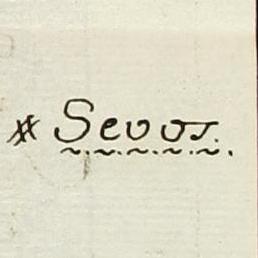 # Sevos.